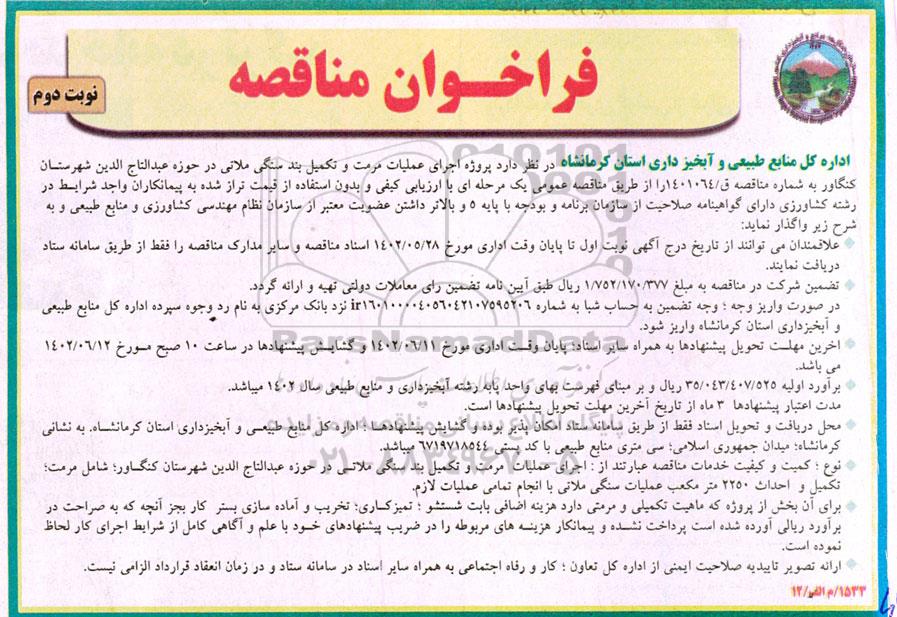 فراخوان مناقصه
نوبت دوم
اداره کل منابع طبیعی و آبخیز داری استان کرمانشاه در نظر دارد پروژه اجرای عملیات مرمت و تکمیل بند سنگی ملاتی در حوزه عبدالتاج الدین شهرستان
کنگاور به شماره مناقصه ق/۱۴۰۱۰۶۴را از طریق مناقصه عمومی یک مرحله ای با ارزیابی کیفی و بدون استفاده از قیمت تراز شده به پیمانکاران واجد شرایط در
رشته کشاورزی دارای گواهینامه صلاحیت از سازمان برنامه و بودجه با پایه ۵ و بالاتر داشتن عضویت معتبر از سازمان نظام مهندسی کشاورزی و منابع طبیعی و به
شرح زیر واگذار نماید:
علاقمندان می توانند از تاریخ درج آگهی نوبت اول تا پایان وقت اداری مورخ ۱۴۰۲/۰۵/۲۸ اسناد مناقصه و سایر مدارک مناقصه را فقط از طریق سامانه ستاد
دریافت نمایند.
تضمین شرکت در مناقصه به مبلغ ۱/۷۵۲/۱۷۰/۳۷۷ ریال طبق آیین نامه تضمین رای معاملات دولتی تهیه و ارائه گردد.
در صورت واریز وجه ؛ وجه تضمین به حساب شبا به شماره ir۱۶۰۱۰۰۰۰۴۰۵۶۰۴۲۱۰۷۵۹۵۲۰۶ نزد بانک مرکزی به نام رد وجوه سپرده اداره کل منابع طبیعی
و آبخیزداری استان کرمانشاه واریز شود.
آخرین مهلت تحویل پیشنهادها به همراه سایر اسناد: پایان وقت اداری مورخ ۱۴۰۲/۰۶/۱۱ و گشایش پیشنهادها در ساعت ۱۰ صبح مورخ ۱۴۰۲/۰۶/۱۲
می باشد.
برآورد اولیه ۳۵/۰۴۳/۴۰۷/۵۲۵ ریال و بر مبنای فهرست بهای واحد پایه رشته آبخیزداری و منابع طبیعی سال ۱۴۰۲ میباشد.
مدت اعتبار پیشنهادها ۳ ماه از تاریخ آخرین مهلت تحویل پیشنهادها است.
محل دریافت و تحویل اسناد فقط از طریق سامانه ستاد امکان پذیر بوده و گشایش پیشنهادها : اداره کل منابع طبیعی و آبخیزداری استان کرمانشاه به نشانی
کرمانشاه؛ میدان جمهوری اسلامی؛ سی متری منابع طبیعی با کد پستی ۶۷۱۹۷۱۸۵۴۴ میباشد.
نوع ؛ کمیت و کیفیت خدمات مناقصه عبارتند از : اجرای عملیات مرمت و تکمیل بند سنگی ملاتی در حوزه عبدالتاج الدین شهرستان کنگاور؛ شامل مرمت؛
تکمیل و احداث ۲۲۵۰ متر مکعب عملیات سنگی ملاتی با انجام تمامی عملیات لازم.
برای آن بخش از پروژه که ماهیت تکمیلی و مرمتی دارد هزینه اضافی بابت شستشو ؛ تمیزکاری؛ تخریب و آماده سازی بستر کار بجز آنچه که به صراحت در
برآورد ریالی آورده شده است پرداخت نشده و پیمانکار هزینه های مربوطه را در ضریب پیشنهادهای خود با علم و آگاهی کامل از شرایط اجرای کار لحاظ
نموده است.
ارائه تصویر تاییدیه صلاحیت ایمنی از اداره کل تعاون ؛ کار و رفاه اجتماعی به همراه سایر اسناد در سامانه ستاد و در زمان انعقاد قرارداد الزامی نیست.
۱۵۳۳/م الف/۱۲
ParsNamadData